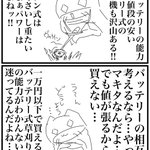 バッテリーの能力
値段安い
リー式の
機も沢山ある!!
式は
重たい
パワーは
よね!!
バッテリーの相性
考えるなら…
マキタなんだよな
でも値が張るから
買えない…
一万円以下で買える
バッテリー草刈り機か
迷ってるんだよね…